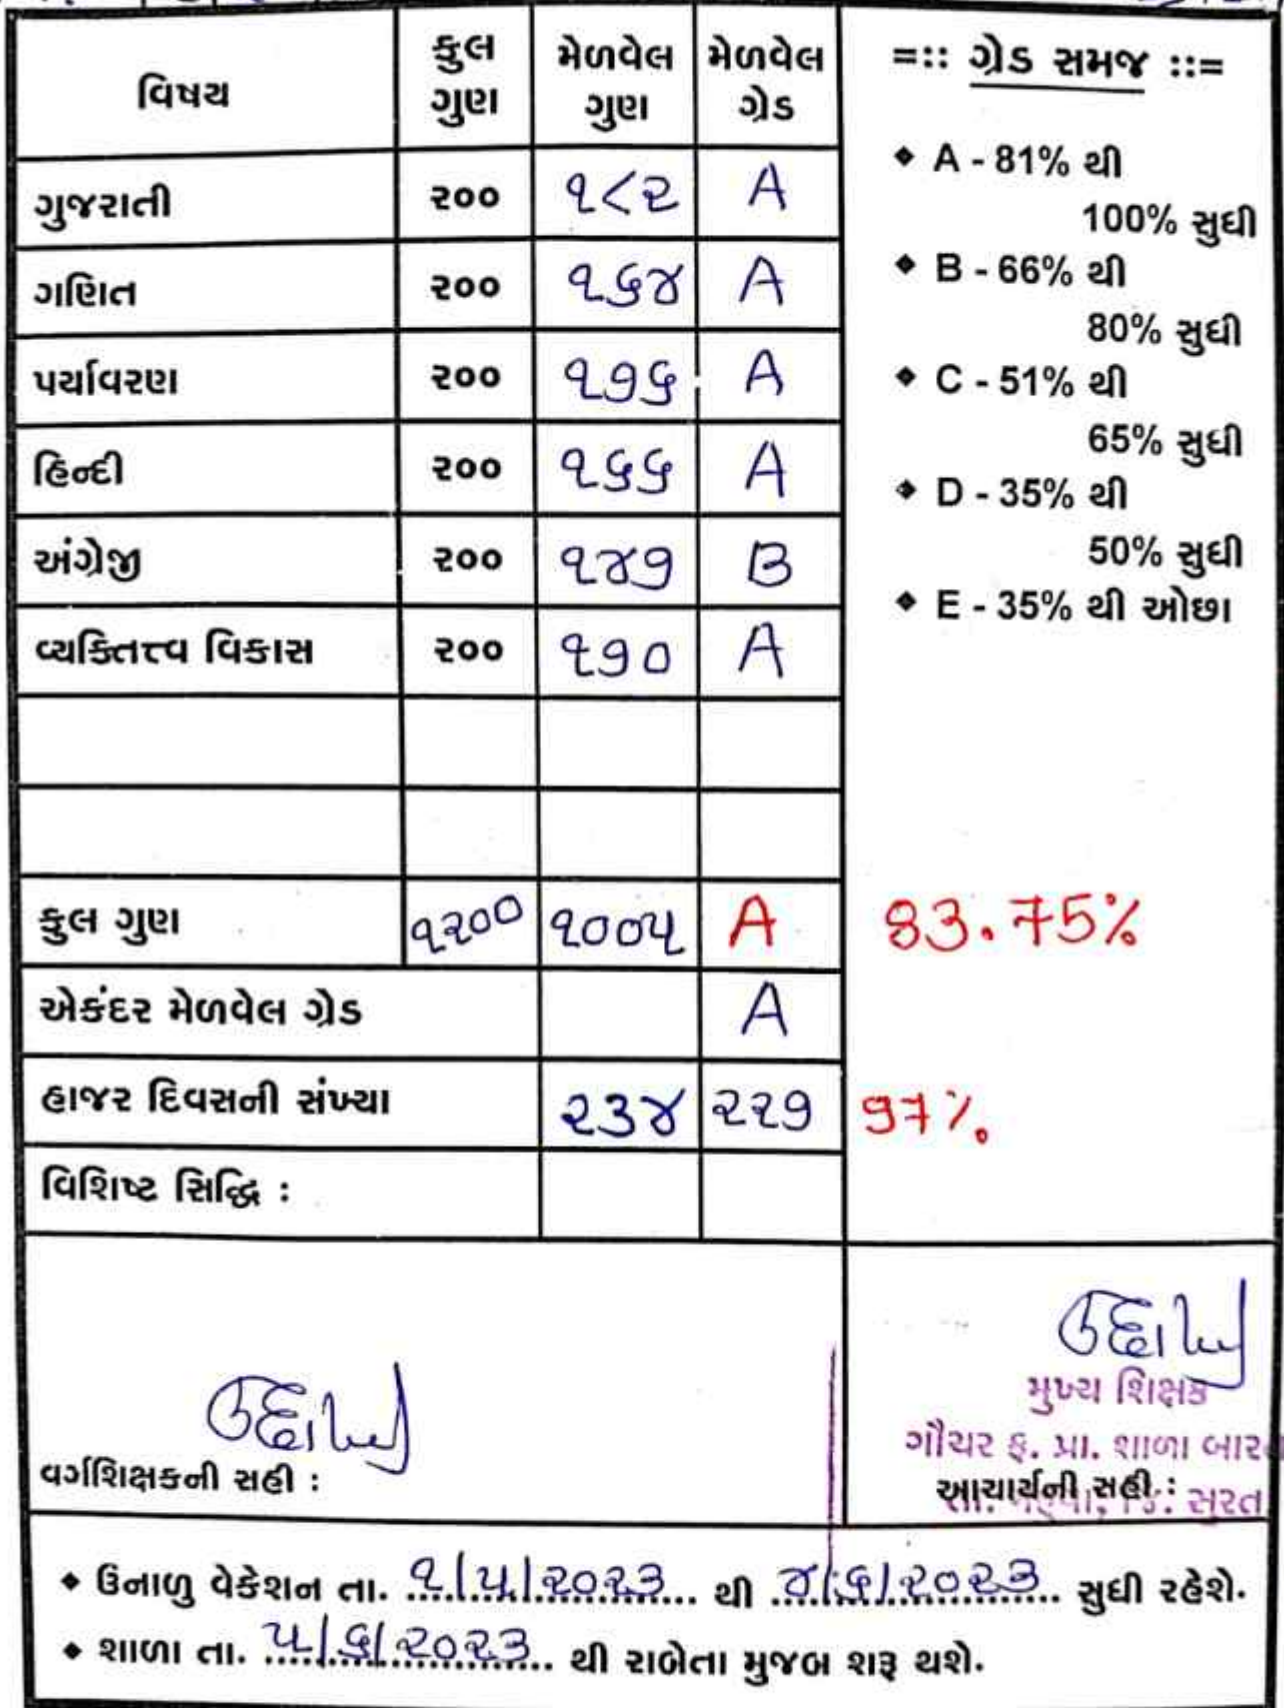 વિષય કુલ ગુણ મેળવેલ ગુણ મેળવેલ ગ્રેડ
ગુજરાતી ૨૦૦ ૧૮૨ A
ગણિત ૨૦૦ ૧૬૪ A
પર્યાવરણ ૨૦૦ ૧૭૬ A
હિન્દી ૨૦૦ ૧૬૬ A
અંગ્રેજી ૨૦૦ ૧૪૭ B
વ્યક્તિત્ત્વ વિકાસ ૨૦૦ ૧૭૦ A
કુલ ગુણ ૧૨૦૦ ૧૦૦૫ A 83.75%
એકંદર મેળવેલ ગ્રેડ A
હાજર દિવસની સંખ્યા ૨૩૪ ૨૨૭ 97%
વિશિષ્ટ સિદ્ધિ :
=:: ગ્રેડ સમજ ::=
❖ A - 81% થી
100% સુધી
❖ B - 66% થી
80% સુધી
❖ C - 51% થી
65% સુધી
❖ D - 35% થી
50% સુધી
❖ E - 35% થી ઓછા
વર્ગશિક્ષકની સહી :
મુખ્ય શિક્ષક
ગૌચર ફ. પ્રા. શાળા
આચાર્યની સહી :
જિ. સુરત
❖ ઉનાળુ વેકેશન તા. ૧/૫/૨૦૨૩ થી ૪/૬/૨૦૨૩ સુધી રહેશે.
❖ શાળા તા. ૫/૬/૨૦૨૩ થી રાબેતા મુજબ શરૂ થશે.